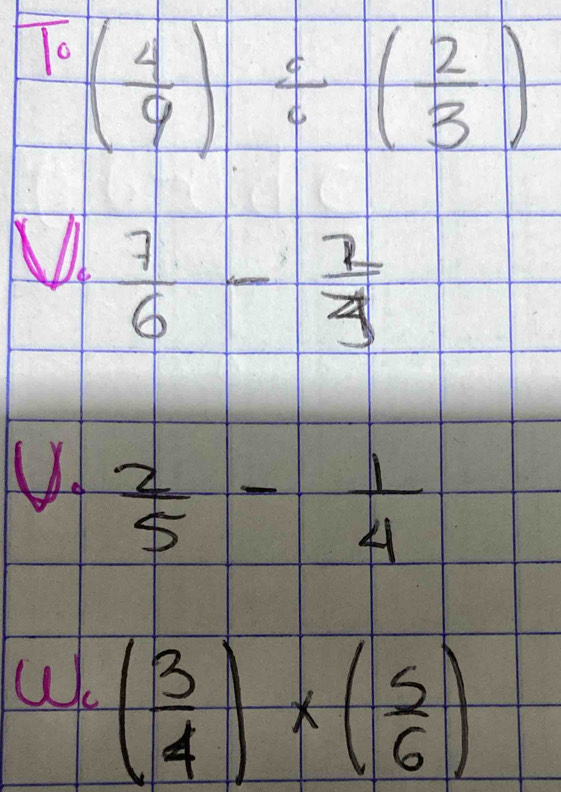 T. (4/9) ÷ (2/3)
V. 7/6 -
V. 2/5 - 1/4
W. (3/4) x (5/6)